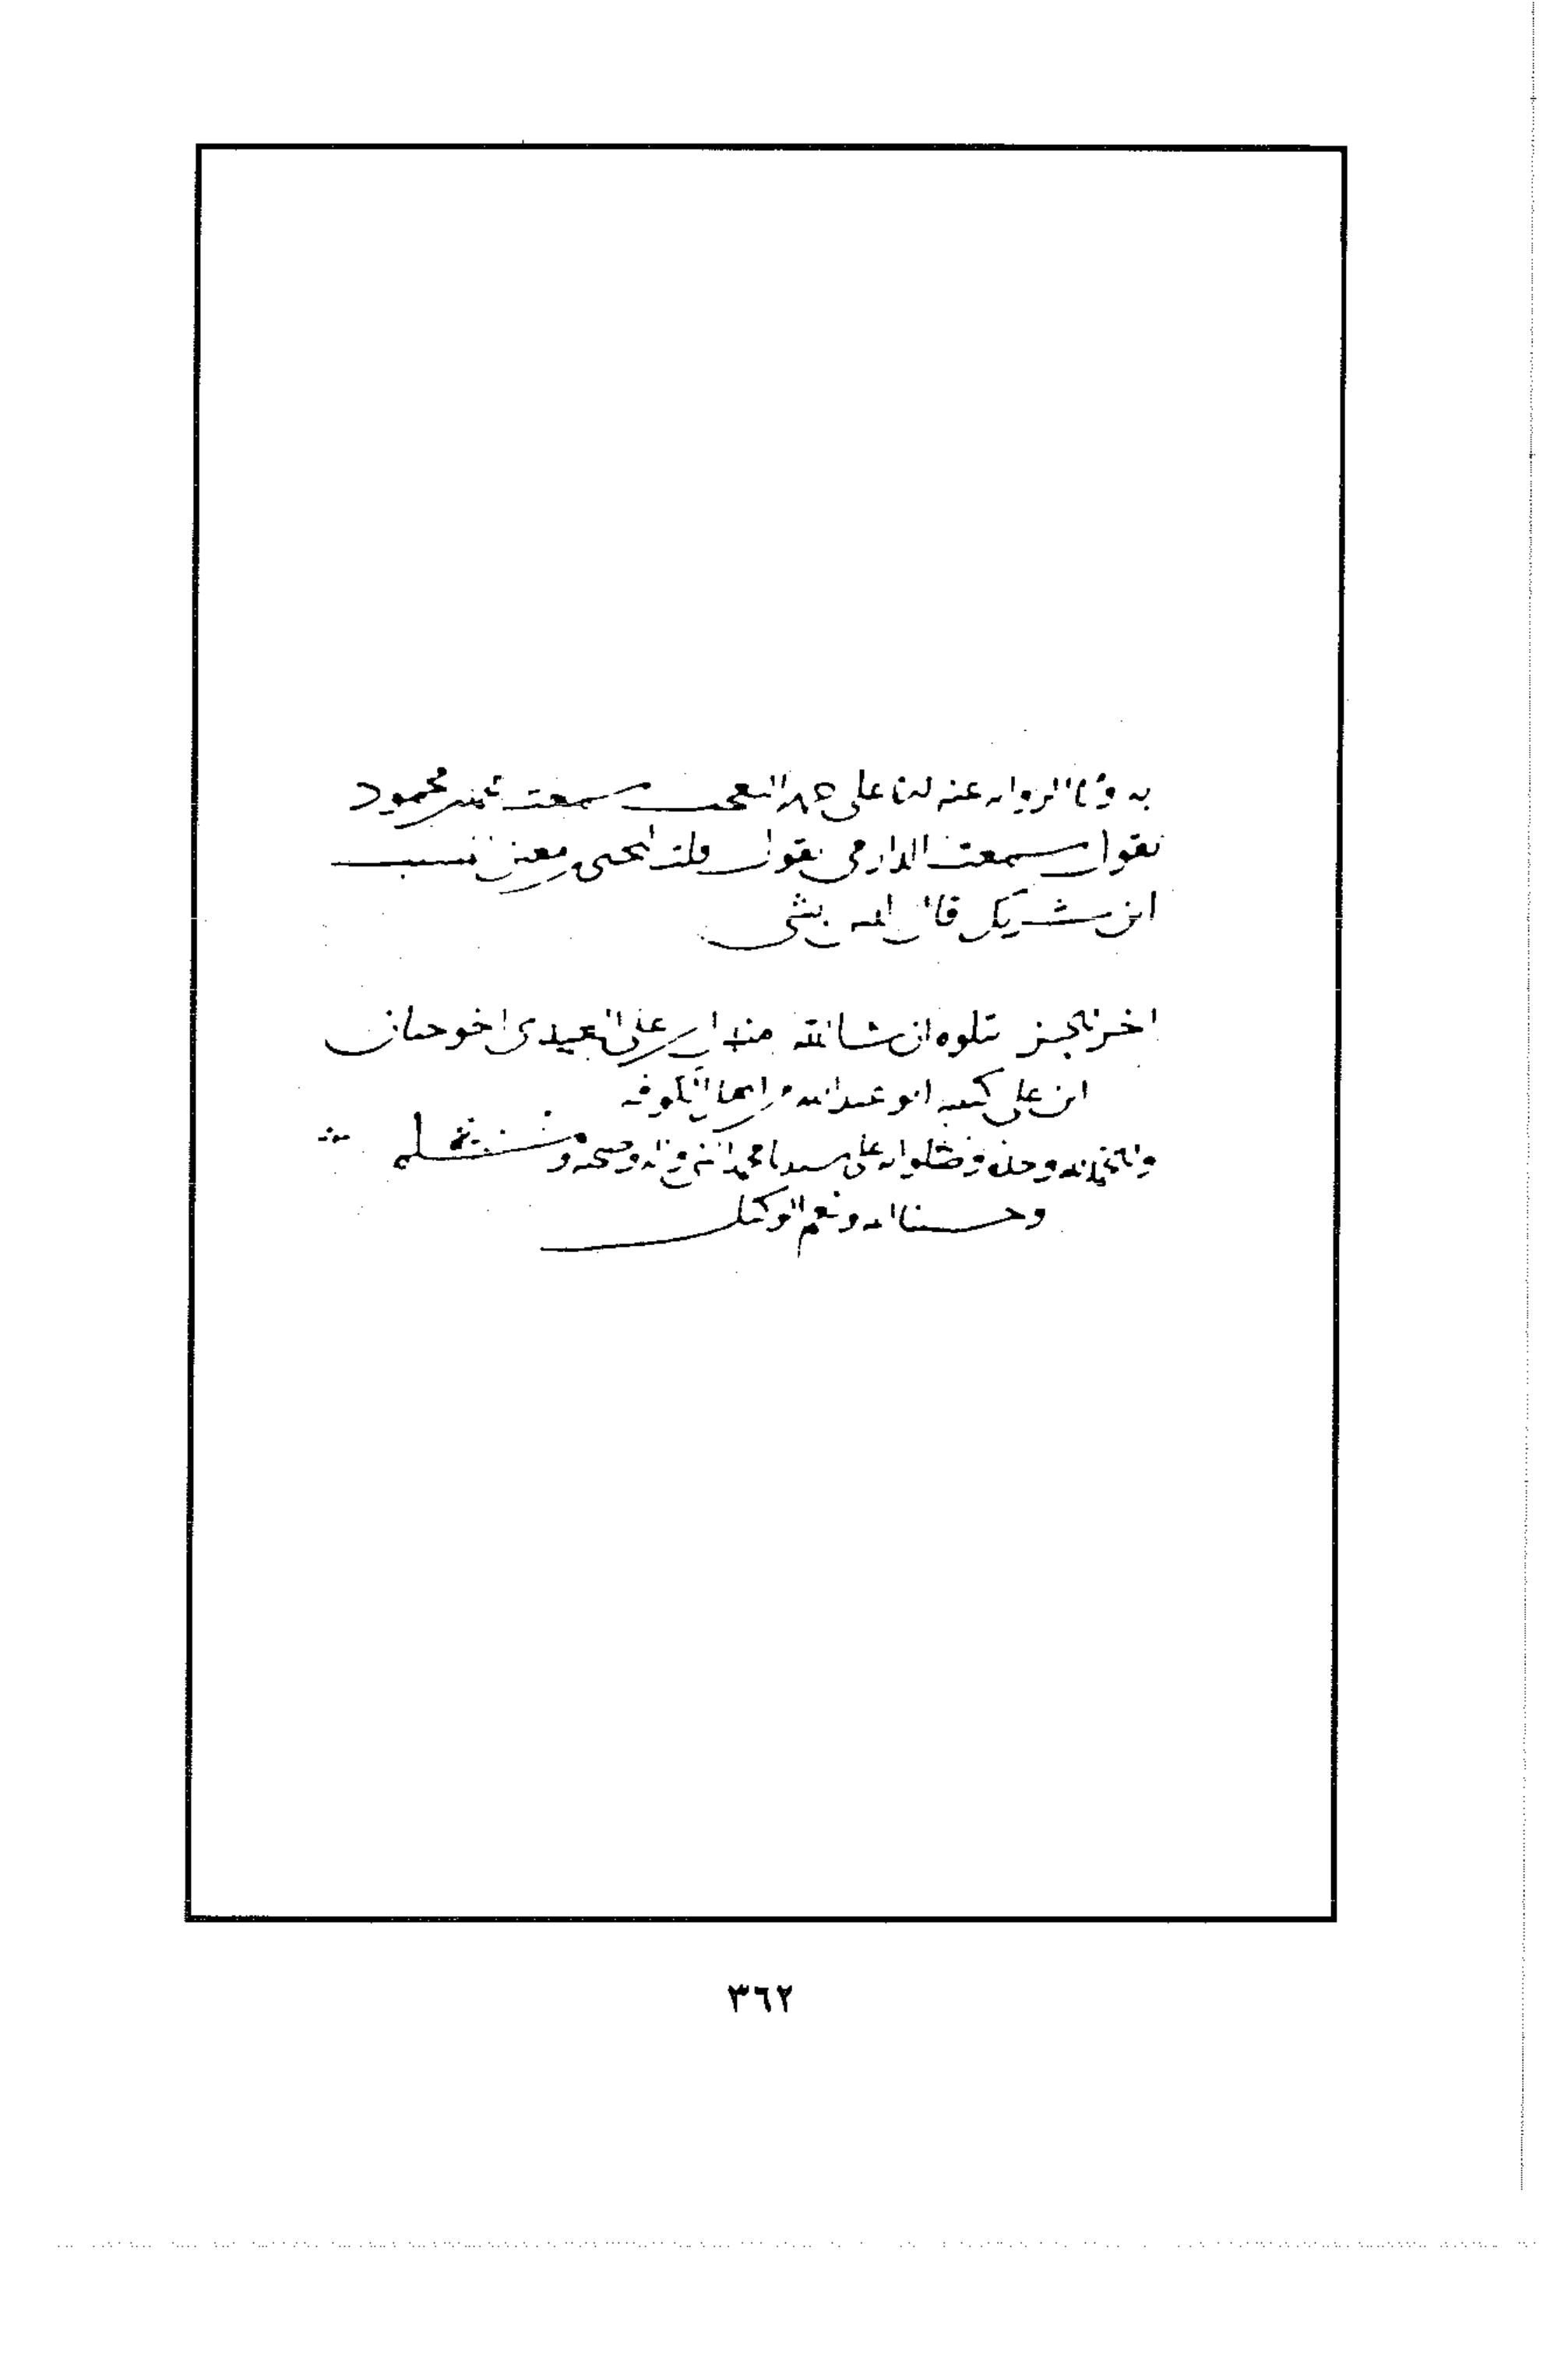 به وفي الرواية عنه لين على ضعف سمعت محمد بن محمود
يقول سمعت الدارمي يقول قلت ليحيى بن معين نسيب
ابن شريك قال ليس بشي
اخر الجز يتلوه ان شا الله مندل بن علي العبدي اخو حبان
ابن علي كنيته ابو عبد الله من اهل الكوفة
والحمد لله وحده وصلواته على سيدنا محمد النبي واله وصحبه وسلم
وحسبنا الله ونعم الوكيل
٣٦٢